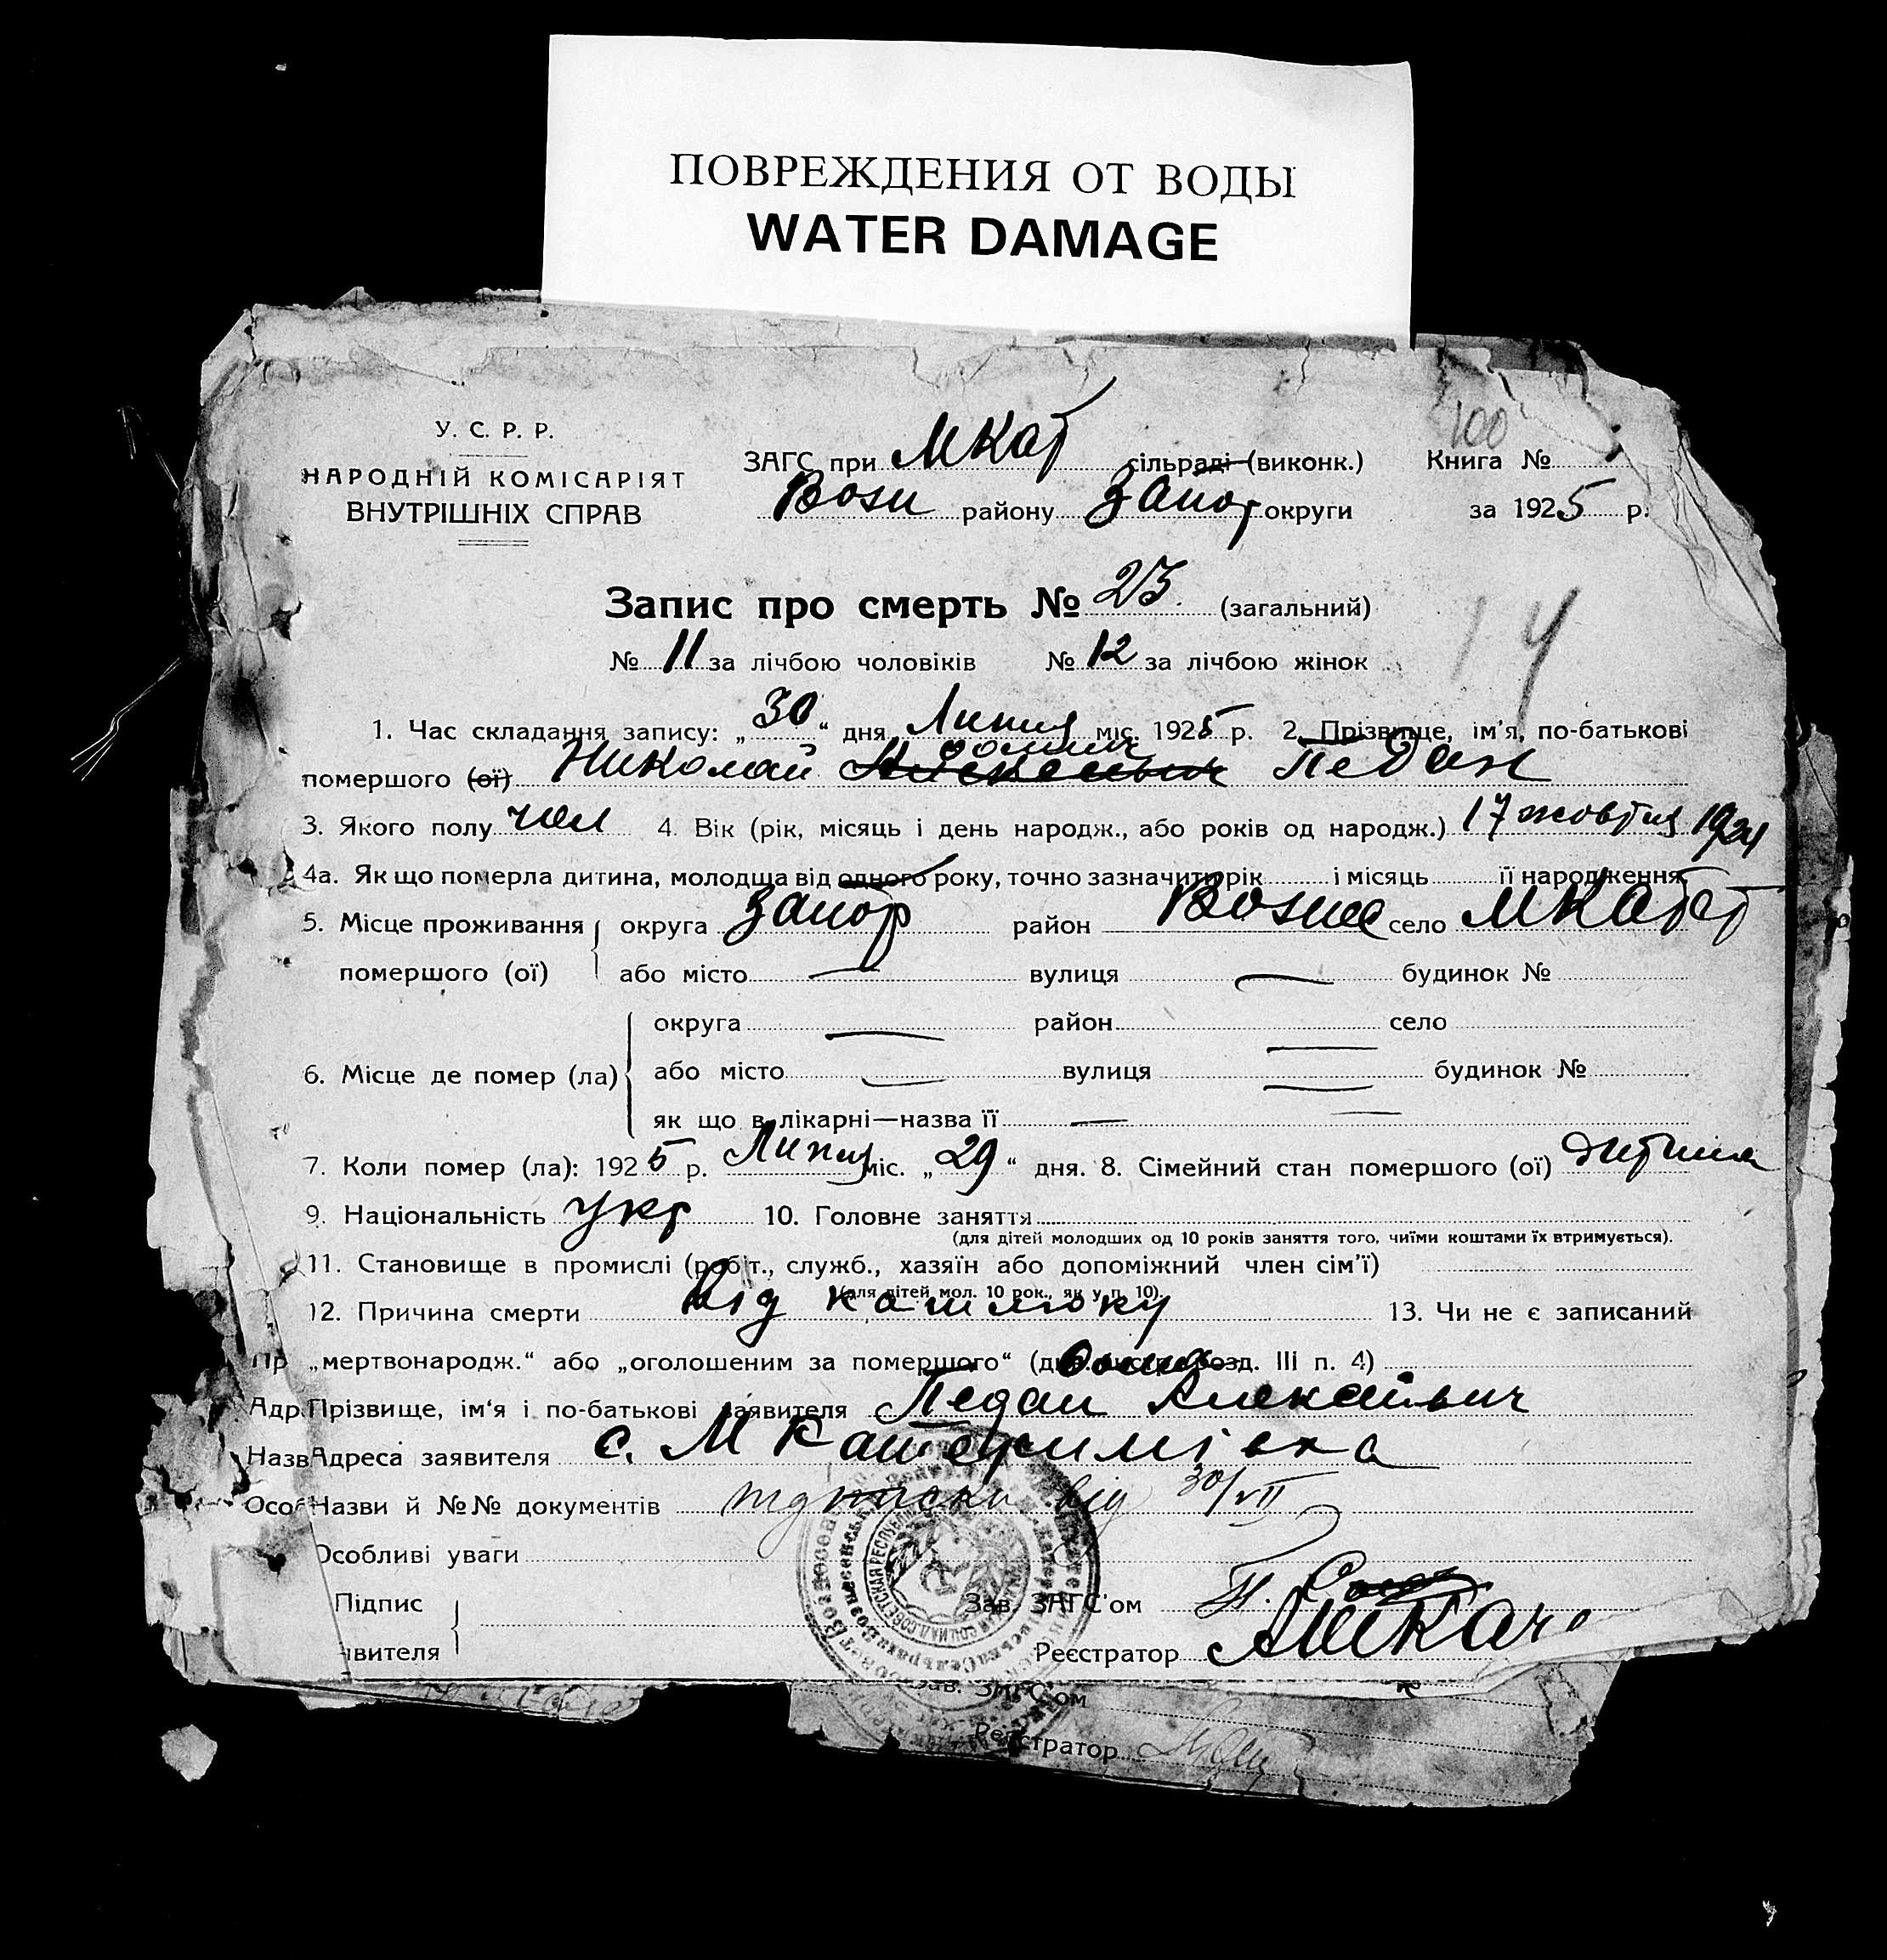 ПОВРЕЖДЕНИЯ ОТ ВОДЫ
WATER DAMAGE
100
У. С. Р. Р.
НАРОДНІЙ КОМІСАРІЯТ
ВНУТРІШНІХ СПРАВ
ЗАГС при МКат сільраді (виконк.) Книга №
Возн району Запор округи за 1925 р.
Запис про смерть № 23 (загальний)
№ 11 за лічбою чоловіків № 12 за лічбою жінок
14
1. Час складання запису: „30“ дня Липня міс. 1925 р. 2. Прізвище, ім'я, по-батькові
помершого (ої) Николай Педан
3. Якого полу чол 4. Вік (рік, місяць і день народж., або років од народж.) 17 жовтня 1924
4а. Як що померла дитина, молодща від одного року, точно зазначити рік і місяць її народження
5. Місце проживання округа Запор район Возне село МКатер
помершого (ої) або місто — вулиця — будинок №
округа — район — село
6. Місце де помер (ла) або місто — вулиця — будинок №
як що в лікарні—назва її —
7. Коли помер (ла): 1925 р. Липня міс. „29“ дня. 8. Сімейний стан помершого (ої) дитина
9. Національність укр 10. Головне заняття
(для дітей молодших од 10 років заняття того, чиїми коштами їх втримується).
11. Становище в промислі (робіт., служб., хазяїн або допоміжний член сім'ї)
(для дітей мол. 10 рок., як у п. 10).
12. Причина смерти Від кашлюку 13. Чи не є записаний
Пр „мертвонародж.“ або „оголошеним за помершого“ (див. розд. III п. 4)
Адр Прізвище, ім'я і по-батькові заявителя Педан Алексеевич
Назв Адреса заявителя с. М Катеринівка
Особ Назви й №№ документів підписка від 30/VII
Особливі уваги
Підпис Зав. ЗАГС'ом П.
явителя Реєстратор
Зав. ЗАГС'ом
Реєстратор